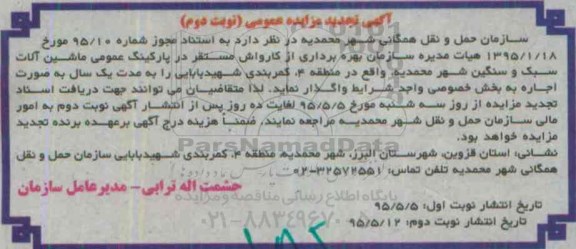 آگهی تجدید مزایده عمومی (نوبت دوم)
سازمان حمل و نقل همگانی شهر محمدیه در نظر دارد به استناد مجوز شماره ۹۵/۱۰ مورخ
۱۳۹۵/۱/۱۸ هیات مدیره سازمان بهره برداری از کارواش مستقر در پارکینگ عمومی ماشین آلات
سبک و سنگین شهر محمدیه واقع در منطقه ۴، کمربندی شهیدبابایی را به مدت یک سال به صورت
اجاره به بخش خصوصی واجد شرایط واگذار نماید. لذا متقاضیان می توانند جهت دریافت اسناد
تجدید مزایده از روز سه شنبه مورخ ۹۵/۵/۵ لغایت ده روز پس از انتشار آگهی نوبت دوم به امور
مالی سازمان حمل و نقل شهر محمدیه مراجعه نمایند. ضمناً هزینه درج آگهی برعهده برنده تجدید
مزایده خواهد بود.
نشانی: استان قزوین، شهرستان البرز، شهر محمدیه، منطقه ۴، کمربندی شهیدبابایی سازمان حمل و نقل
همگانی شهر محمدیه تلفن تماس: ۳۲۵۷۲۵۵۱-۰۲
حشمت اله ترابی- مدیرعامل سازمان
تاریخ انتشار نوبت اول: ۹۵/۵/۵
تاریخ انتشار نوبت دوم: ۹۵/۵/۱۲
ParsNamadData
پایگاه اطلاع رسانی مناقصه و مزایده
۰۲۱-۸۸۳۴۹۶۷۰